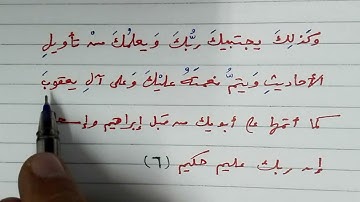 وَكَذلِكَ يجتبيكَ رَبُّكَ وَيعلمُكَ مِنْ تأويلِ
الأحاديثِ وَيتمُّ نعمتَهُ عليْكَ وَعلى آلِ يعقوبَ
كما أتمها على أبويك من قبل إبراهيم وإسـ
إن ربك عليم حكيم (٦)